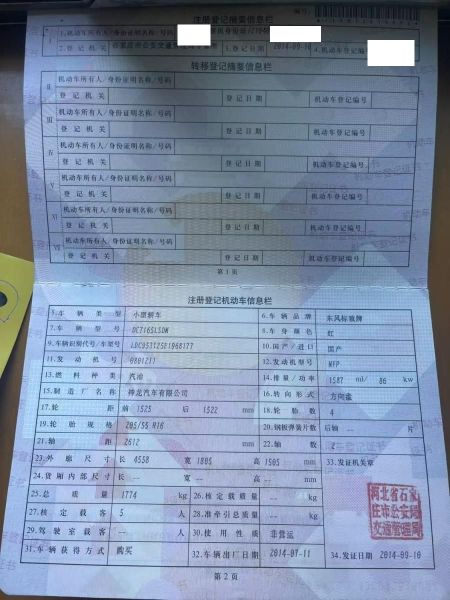 注册登记摘要信息栏
编号:
Ⅰ 1.机动车所有人/身份证明名称/号码
2.登记机关 3.登记日期 2014-09-10 4.机动车登记编号
转移登记摘要信息栏
Ⅱ 机动车所有人/身份证明名称/号码
登记机关 登记日期 机动车登记编号
Ⅲ 机动车所有人/身份证明名称/号码
登记机关 登记日期 机动车登记编号
Ⅳ 机动车所有人/身份证明名称/号码
登记机关 登记日期 机动车登记编号
Ⅴ 机动车所有人/身份证明名称/号码
登记机关 登记日期 机动车登记编号
Ⅵ 机动车所有人/身份证明名称/号码
登记机关 登记日期 机动车登记编号
Ⅶ 机动车所有人/身份证明名称/号码
登记机关 登记日期 机动车登记编号
第1页
注册登记机动车信息栏
5.车辆类型 小型轿车 6.车辆品牌 东风标致牌
7.车辆型号 DC7165LSDM 8.车身颜色 红
9.车辆识别代号/车架号 10.国产/进口 国产
11.发动机号 12.发动机型号 NFP
13.燃料种类 汽油 14.排量/功率 1587 ml/ 86 kw
15.制造厂名称 神龙汽车有限公司 16.转向形式 方向盘
17.轮距 前 1525 后 1522 mm 18.轮胎数 4
19.轮胎规格 205/55 R16 20.钢板弹簧片数 后轴 -- 片
21.轴距 2612 mm 22.轴数 2
23.外廓尺寸 长 4558 宽 1805 高 1505 mm 33.发证机关章
24.货厢内部尺寸 长 -- 宽 -- 高 -- mm
25.总质量 1774 kg 26.核定载质量 -- kg
27.核定载客 5 人 28.准牵引总质量 -- kg
29.驾驶室载客 -- 人 30.使用性质 非营运
31.车辆获得方式 购买 32.车辆出厂日期 2014-07-11 34.发证日期 2014-09-10
河北省石家
庄市公安局
交通管理局
第2页